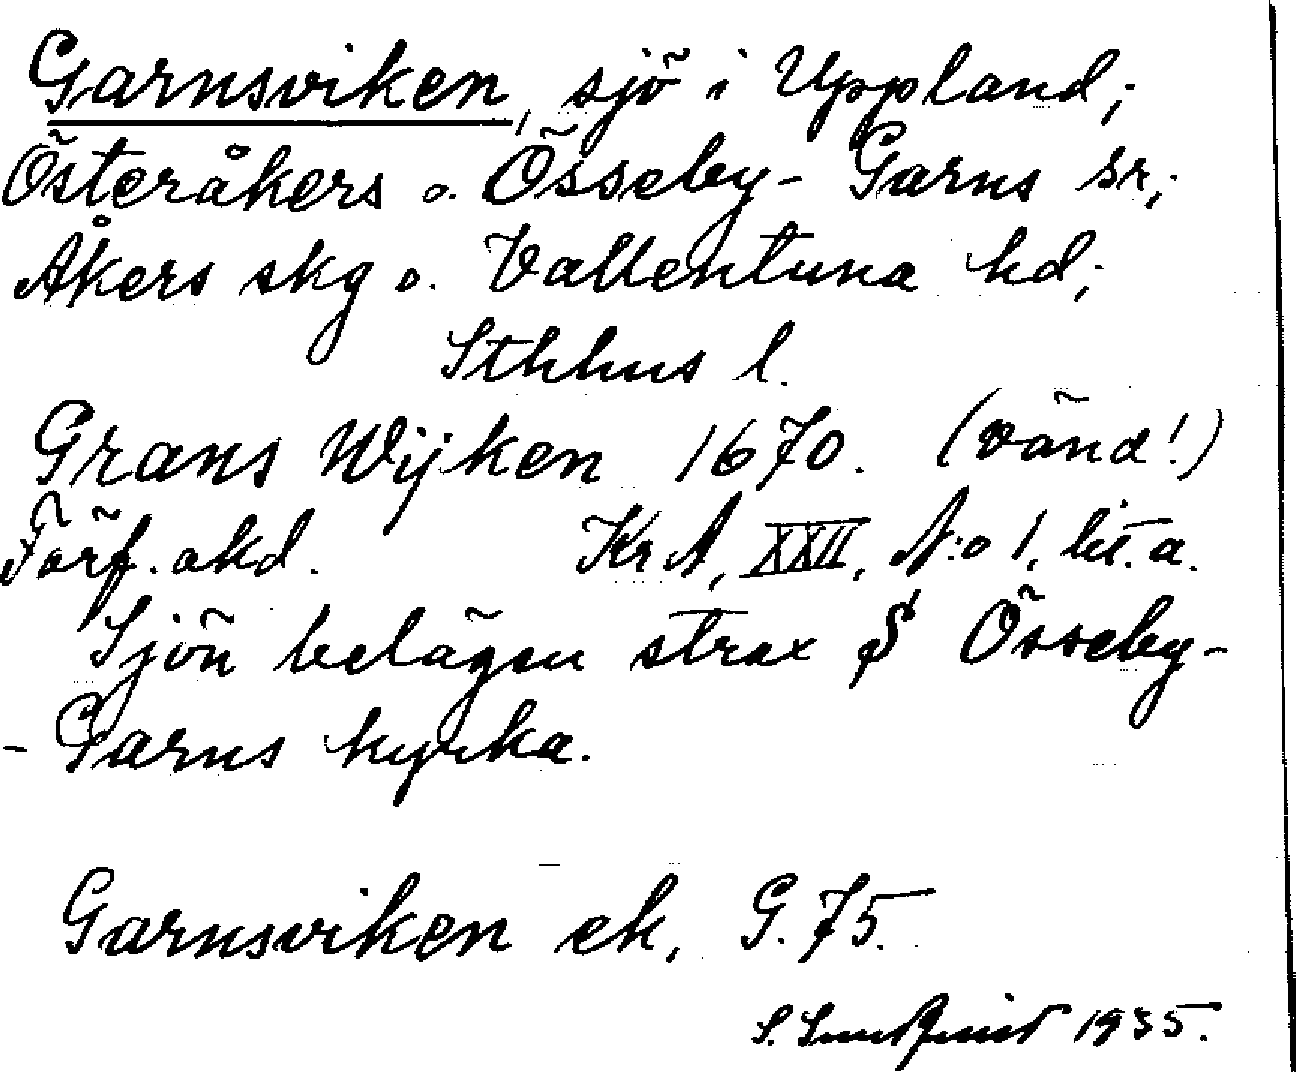 Garnsviken, sjö i Uppland;
Österåkers o. Össeby- Garns sr;
Åkers skg o. Vallentuna hd;
Sthlms l.
Grans Wijken 1670. (vänd!)
Förf. okd. KrA, XXII, N:o 1, lit. a.
Sjön belägen strax S Össeby-
- Garns kyrka.
Garnsviken ek, G. 75.
S. Sundqvist 1935.